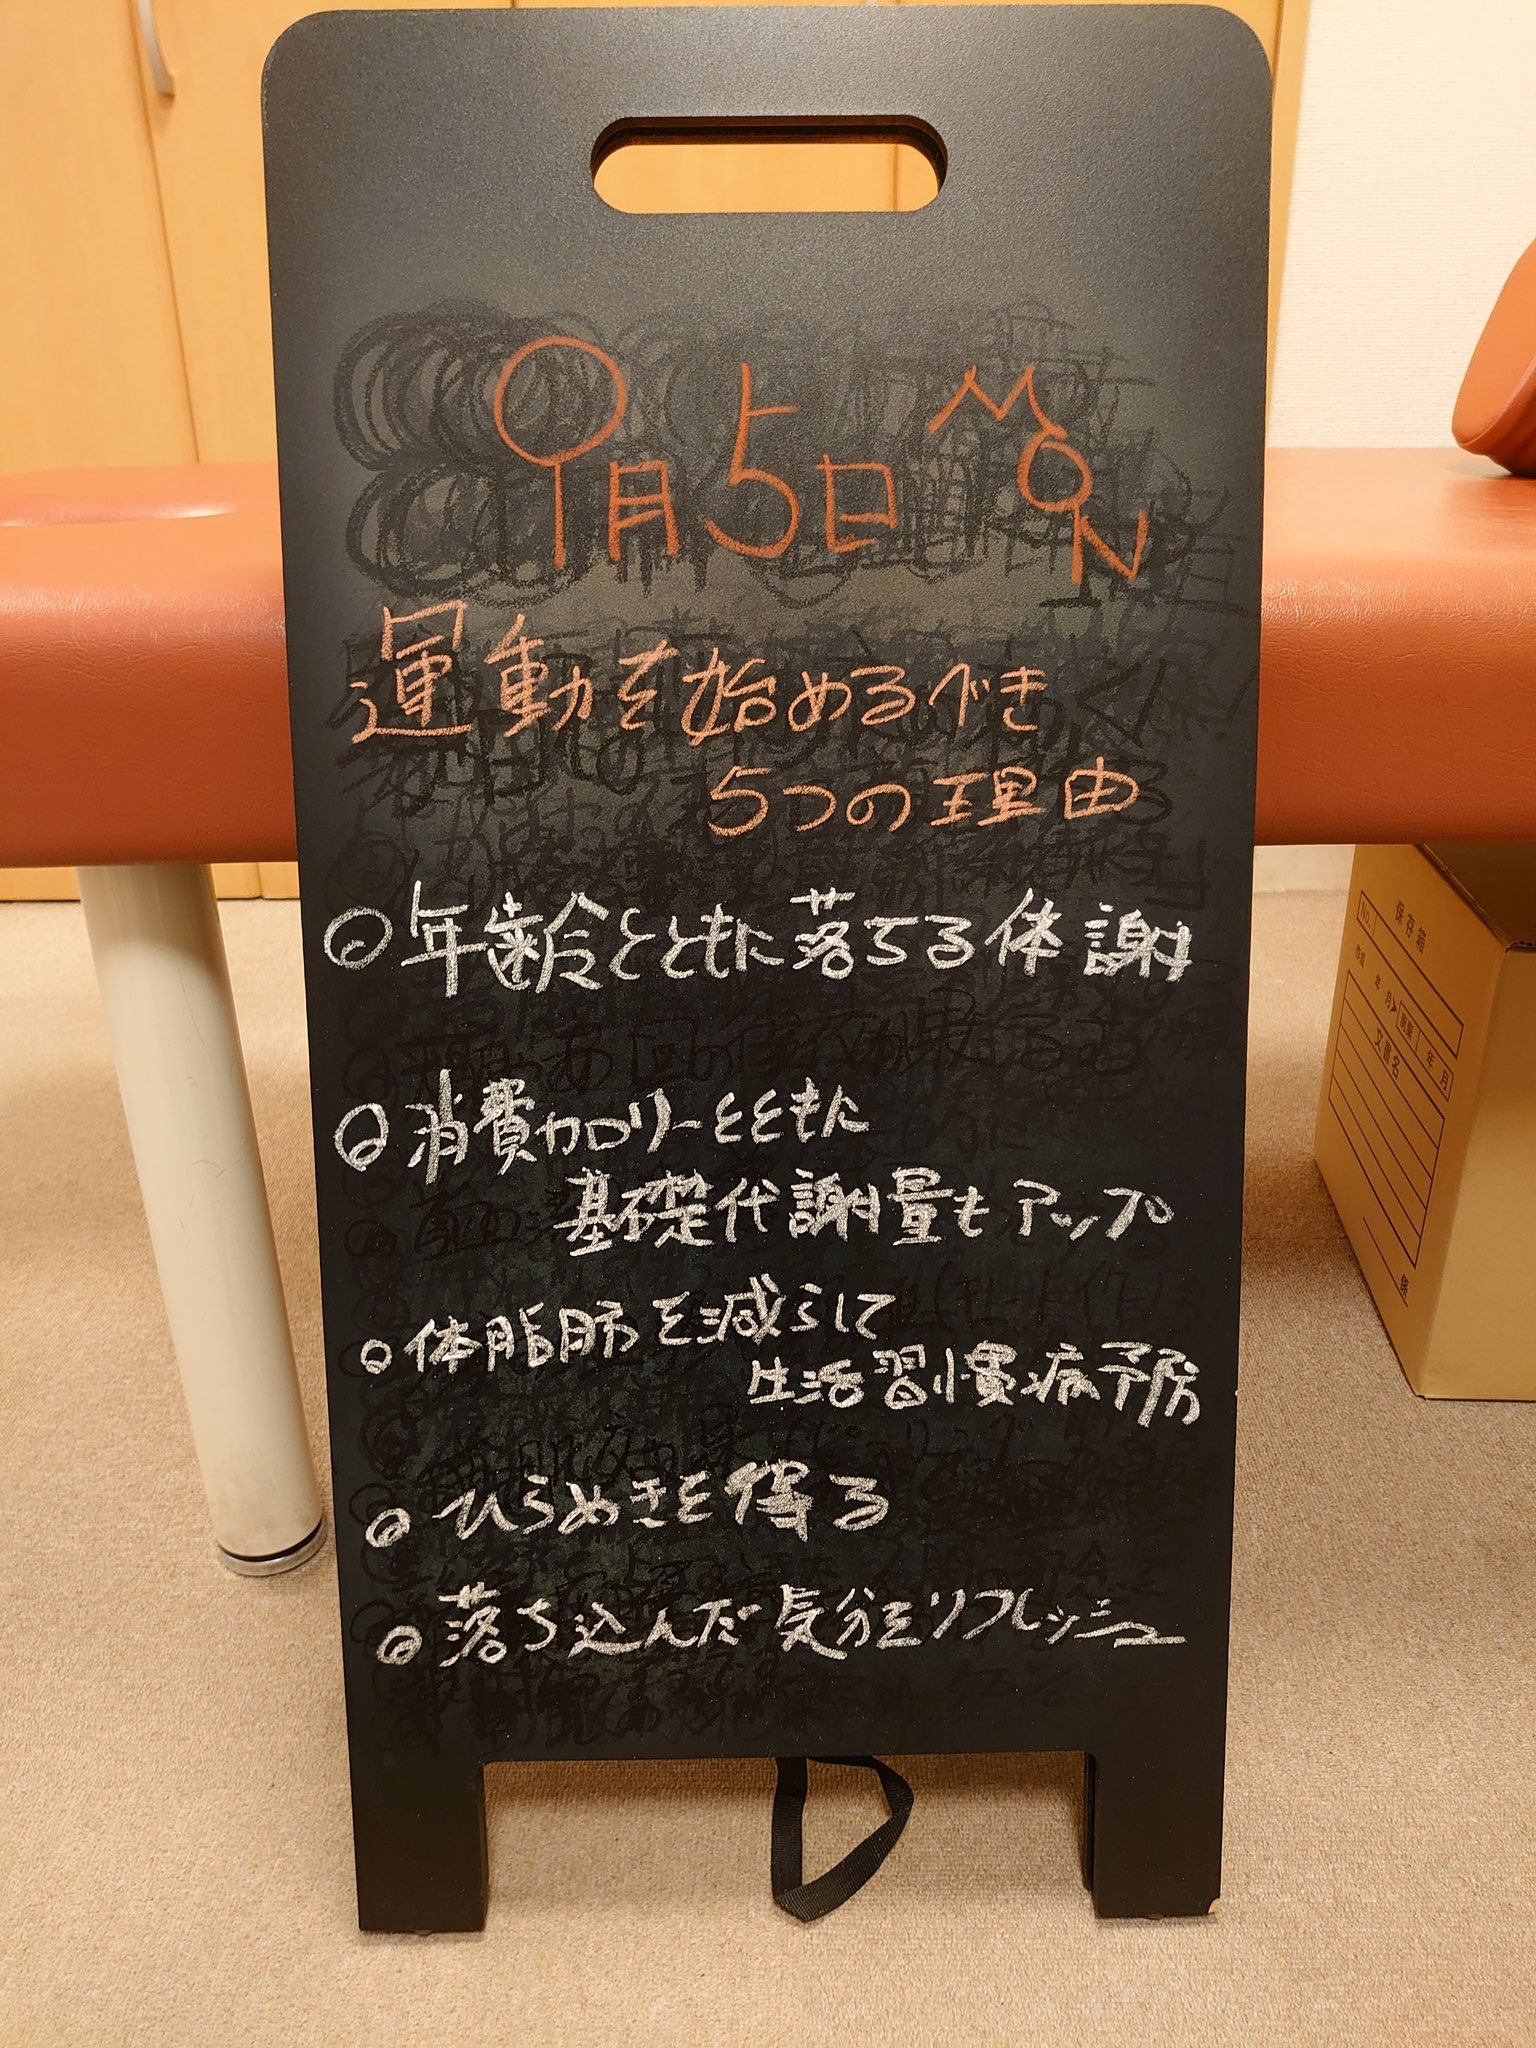 9月5日 MON
運動を始めるべき
5つの理由
◎年齢とともに落ちる体謝
◎消費カロリーとともに
基礎代謝量もアップ
◎体脂肪を減らして
生活習慣病予防
◎ひらめきを得る
◎落ち込んだ気分をリフレッシュ
保存箱
No.
年 月
年 月
文書名